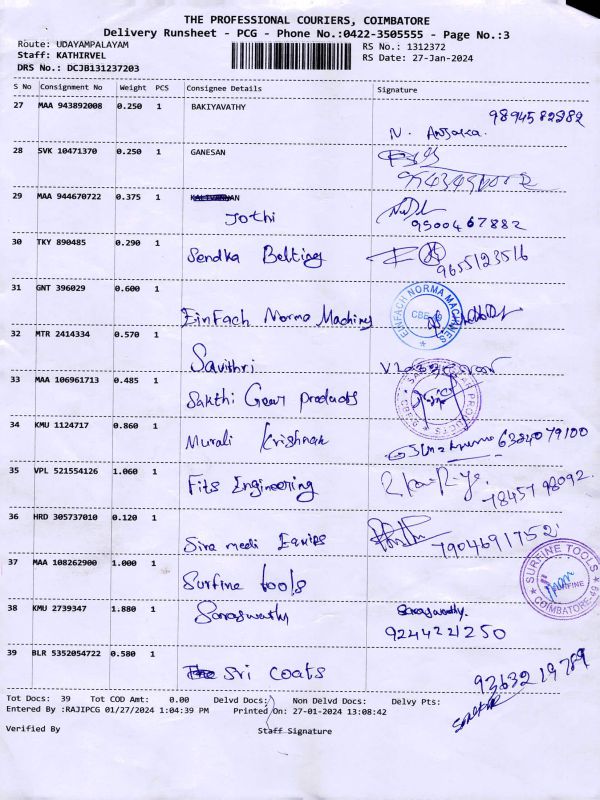 THE PROFESSIONAL COURIERS, COIMBATORE
Delivery Runsheet - PCG - Phone No.:0422-3505555 - Page No.:3
Route: UDAYAMPALAYAM
Staff: KATHIRVEL
DRS No.: DCJB131237203
RS No.: 1312372
RS Date: 27-Jan-2024
S No Consignment No Weight PCS Consignee Details Signature
27 MAA 943892008 0.250 1 BAKIYAVATHY 9894582282
N.
28 SVK 10471370 0.250 1 GANESAN
29 MAA 944670722 0.375 1
Jothi 9500467882
30 TKY 890485 0.290 1
Sendka Belting 9655123516
31 GNT 396029 0.600 1
EinFach Norma Machines EINFACH NORMA MACHINES
32 MTR 2414334 0.570 1
Savithri
33 MAA 106961713 0.485 1
Sakthi Gear products
34 KMU 1124717 0.860 1
Murali Krishnan 6384079100
35 VPL 521554126 1.060 1
Fits Engineering 7845798092
36 HRD 305737010 0.120 1
Siva medi Equips 7904691752
37 MAA 108262900 1.000 1
Surfine tools SURFINE TOOLS COIMBATORE
38 KMU 2739347 1.880 1
Saraswathy Saraswathy.
9244221250
39 BLR 5352054722 0.580 1
Sri coats 9363219789
Tot Docs: 39 Tot COD Amt: 0.00 Delvd Docs: Non Delvd Docs: Delvy Pts:
Entered By :RAJIPCG 01/27/2024 1:04:39 PM Printed On: 27-01-2024 13:08:42
Verified By Staff Signature